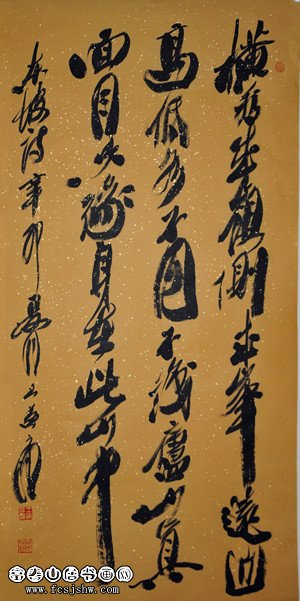 橫看成嶺側成峯遠近
高低各不同不識廬山真
面目只緣身在此山中
東坡詩辛卯夏月
富春山居书画网
www.fcsjshw.com